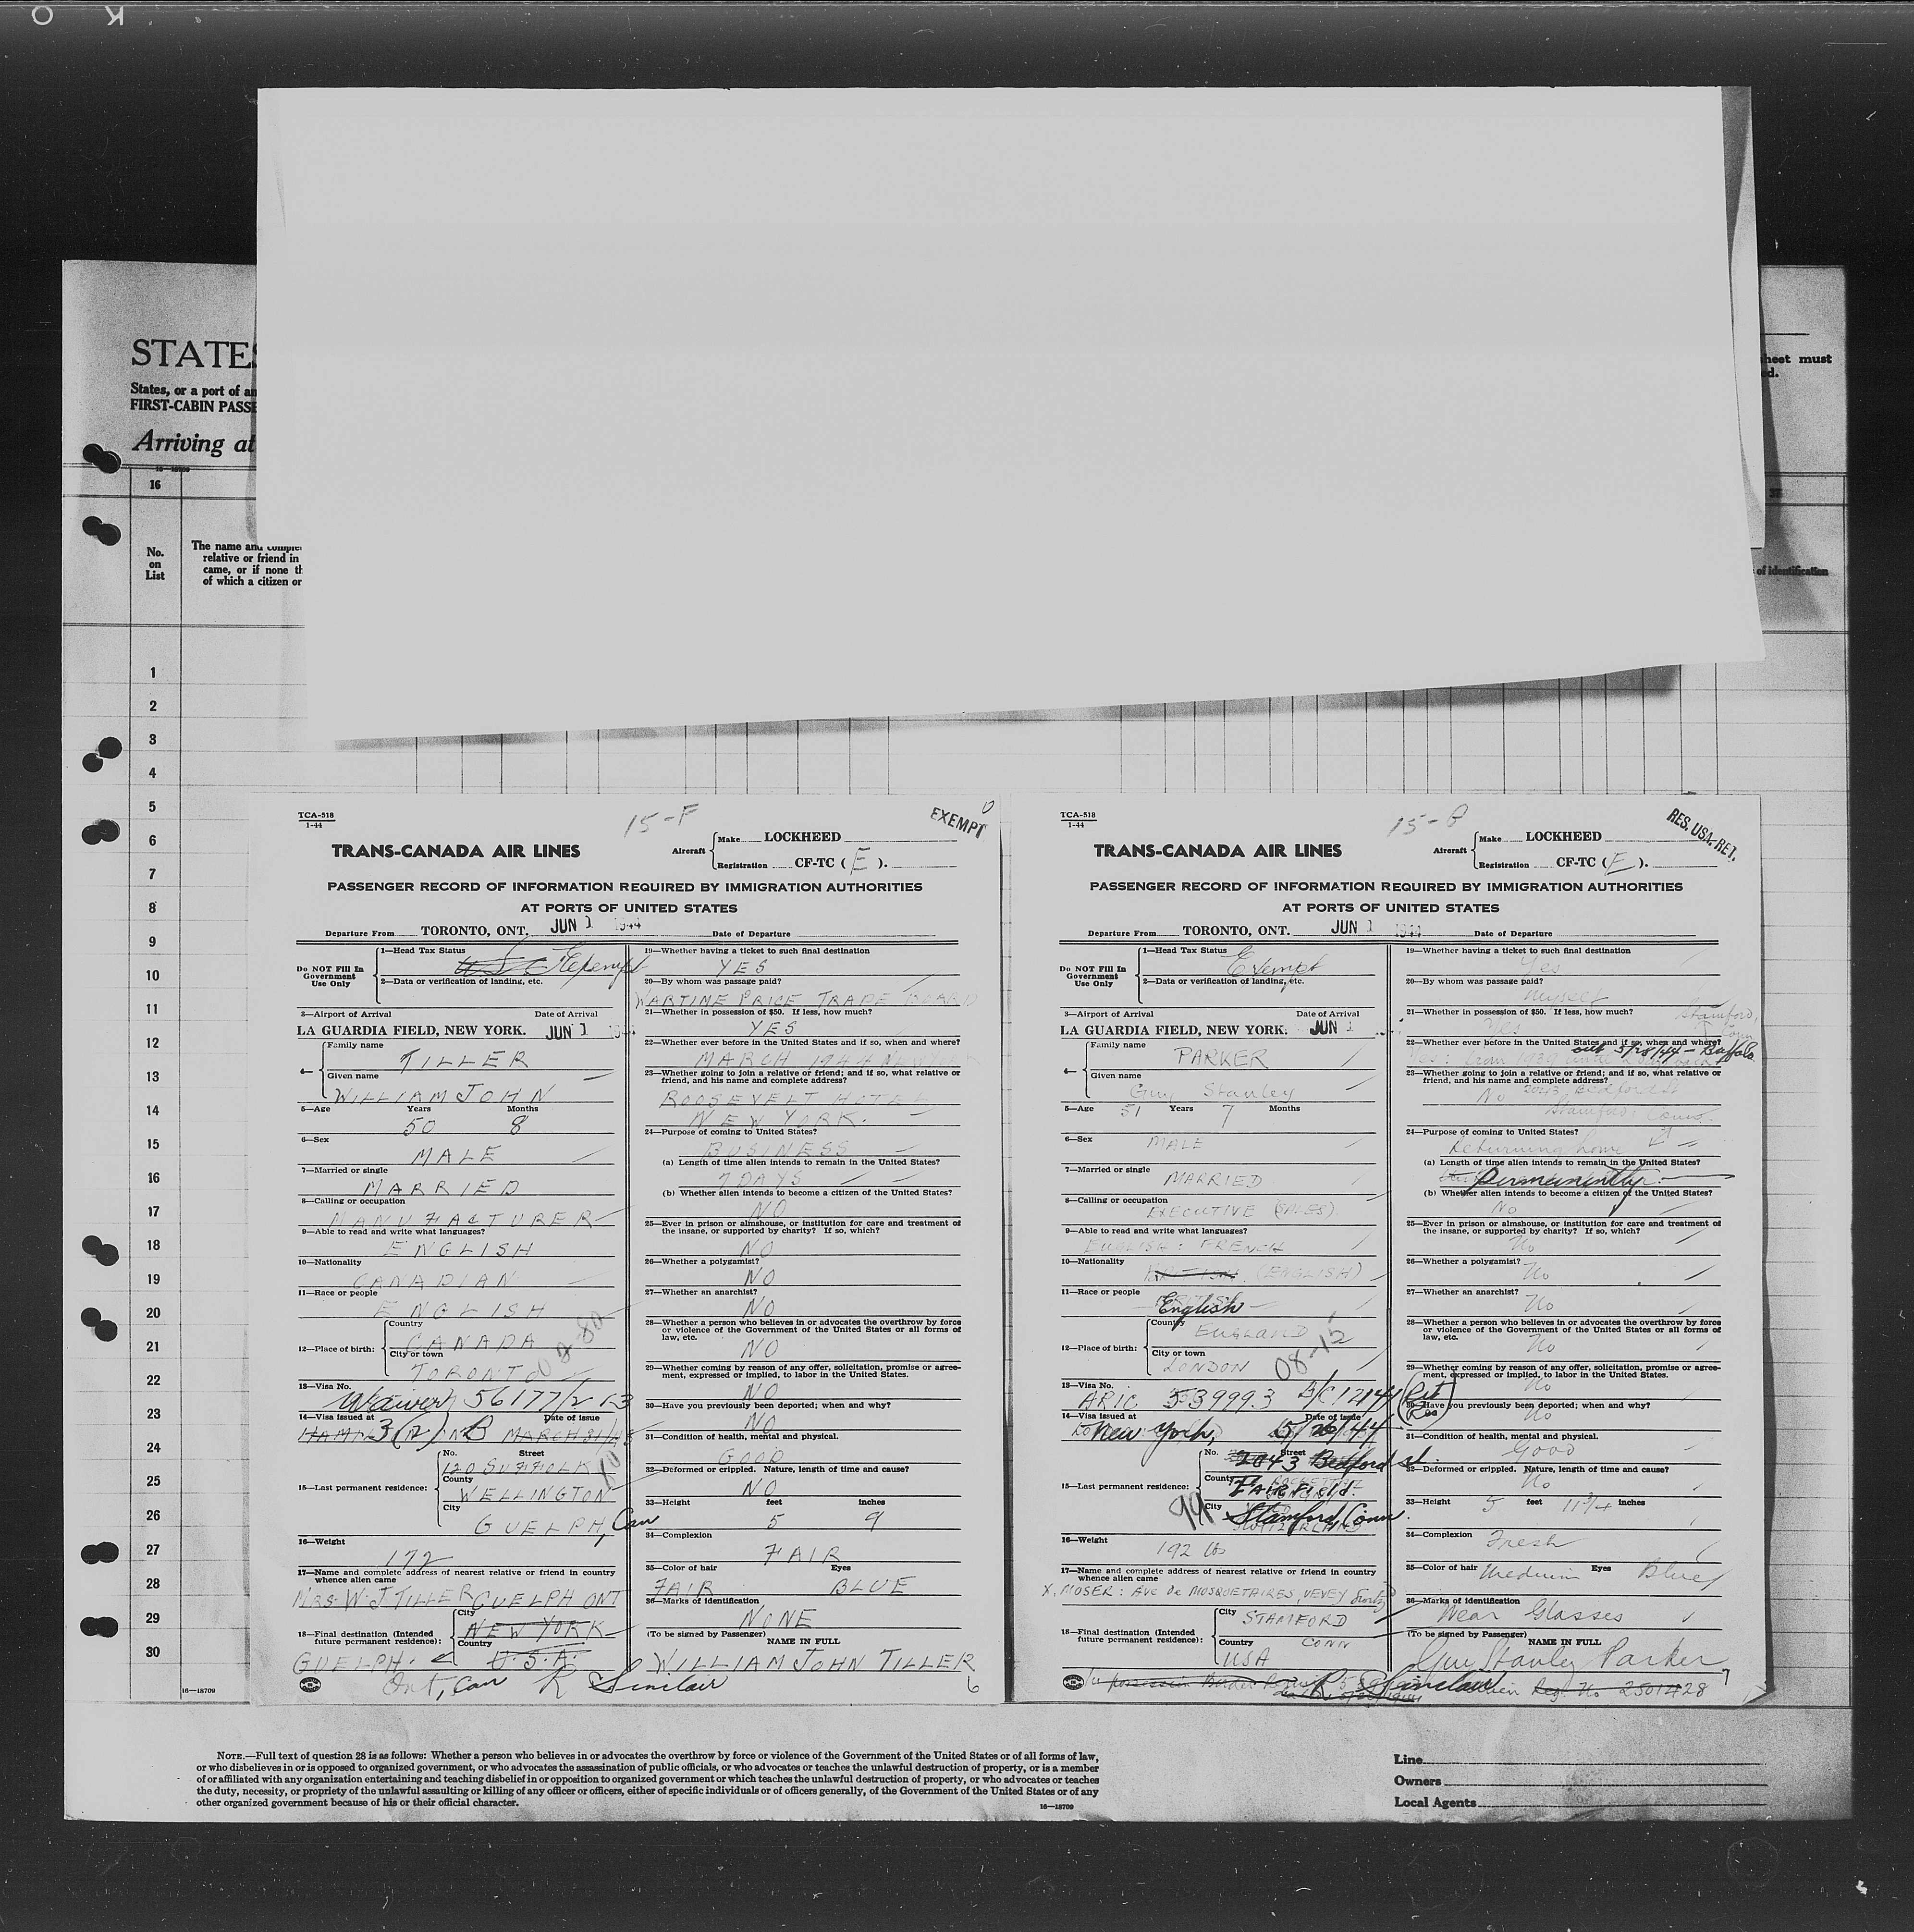 O K
STATES
States, or a port of an
FIRST-CABIN PASSE
Arriving at
heet must
ed.
16
No.
on
List
The name and comple
relative or friend in
came, or if none th
of which a citizen or
of identification
1
2
3
4
5
6
7
8
9
10
11
12
13
14
15
16
17
18
19
20
21
22
23
24
25
26
27
28
29
30
16—18709
TCA-518
1-44
15-F
EXEMPT
TRANS-CANADA AIR LINES
Aircraft
Make LOCKHEED
Registration CF-TC (E).
PASSENGER RECORD OF INFORMATION REQUIRED BY IMMIGRATION AUTHORITIES
AT PORTS OF UNITED STATES
Departure From TORONTO, ONT. JUN 1 1944 Date of Departure
Do NOT Fill In
Government
Use Only
1—Head Tax Status
Exempt
2—Data or verification of landing, etc.
3—Airport of Arrival Date of Arrival
LA GUARDIA FIELD, NEW YORK. JUN 1
4—
Family name
TILLER
Given name
WILLIAM JOHN
5—Age Years Months
50 8
6—Sex
MALE
7—Married or single
MARRIED
8—Calling or occupation
MANUFACTURER
9—Able to read and write what languages?
ENGLISH
10—Nationality
CANADIAN
11—Race or people
ENGLISH
12—Place of birth:
Country
CANADA
City or town
TORONTO
13—Visa No.
Waiver 56177/2
14—Visa issued at Date of issue
3(2) B MARCH 31/
15—Last permanent residence:
No. Street
120 SUFFOLK
County
WELLINGTON
City
GUELPH, Can
16—Weight
172
17—Name and complete address of nearest relative or friend in country
whence alien came
MRS. W. J TILLER GUELPH ONT
18—Final destination (Intended
future permanent residence):
City
NEW YORK
Country
U.S.A.
GUELPH.
Ont, Can R Sinclair
19—Whether having a ticket to such final destination
YES
20—By whom was passage paid?
WARTIME PRICE TRADE BOARD
21—Whether in possession of $50. If less, how much?
YES
22—Whether ever before in the United States and if so, when and where?
MARCH 1944 NEW YORK
23—Whether going to join a relative or friend; and if so, what relative or
friend, and his name and complete address?
ROOSEVELT HOTEL
NEW YORK.
24—Purpose of coming to United States?
BUSINESS
(a) Length of time alien intends to remain in the United States?
7 DAYS
(b) Whether alien intends to become a citizen of the United States?
NO
25—Ever in prison or almshouse, or institution for care and treatment of
the insane, or supported by charity? If so, which?
NO
26—Whether a polygamist?
NO
27—Whether an anarchist?
NO
28—Whether a person who believes in or advocates the overthrow by force
or violence of the Government of the United States or all forms of
law, etc.
NO
29—Whether coming by reason of any offer, solicitation, promise or agree-
ment, expressed or implied, to labor in the United States.
NO
30—Have you previously been deported; when and why?
NO
31—Condition of health, mental and physical.
GOOD
32—Deformed or crippled. Nature, length of time and cause?
NO
33—Height feet inches
5 9
34—Complexion
FAIR
35—Color of hair Eyes
FAIR BLUE
36—Marks of identification
NONE
(To be signed by Passenger) NAME IN FULL
WILLIAM JOHN TILLER
6
TCA-518
1-44
RES. USA. RET.
TRANS-CANADA AIR LINES
Aircraft
Make LOCKHEED
Registration CF-TC (E).
PASSENGER RECORD OF INFORMATION REQUIRED BY IMMIGRATION AUTHORITIES
AT PORTS OF UNITED STATES
Departure From TORONTO, ONT. JUN 1 1944 Date of Departure
Do NOT Fill In
Government
Use Only
1—Head Tax Status
Exempt
2—Data or verification of landing, etc.
3—Airport of Arrival Date of Arrival
LA GUARDIA FIELD, NEW YORK. JUN 1
4—
Family name
PARKER
Given name
Guy Stanley
5—Age 51 Years 7 Months
6—Sex
MALE
7—Married or single
MARRIED
8—Calling or occupation
EXECUTIVE (SALES).
9—Able to read and write what languages?
ENGLISH: FRENCH
10—Nationality
BRITISH. (ENGLISH)
11—Race or people
English
12—Place of birth:
Country
ENGLAND
City or town
LONDON
08-15
13—Visa No.
ARIC 539993
14—Visa issued at Date of issue
New York, 5/26/44
15—Last permanent residence:
No. Street
2043 Bedford st.
County
FAIRFIELD.
City
Stamford, Conn.
99
16—Weight
192 lbs
17—Name and complete address of nearest relative or friend in country
whence alien came
X. MOSER: Ave de MOSQUETAIRES, VEVEY
18—Final destination (Intended
future permanent residence):
City
STAMFORD
CONN
Country
USA
in possession Border R Sinclair Reg. No 2501428
19—Whether having a ticket to such final destination
Yes
20—By whom was passage paid?
Myself
21—Whether in possession of $50. If less, how much?
Yes
Stamford,
Conn
22—Whether ever before in the United States and if so, when and where?
Yes: from 1939 5/28/44 - Buffalo
23—Whether going to join a relative or friend; and if so, what relative or
friend, and his name and complete address?
No 2043 Bedford St
Stamford: Conn.
24—Purpose of coming to United States?
Returning home
(a) Length of time alien intends to remain in the United States?
Permanently.
(b) Whether alien intends to become a citizen of the United States?
No
25—Ever in prison or almshouse, or institution for care and treatment of
the insane, or supported by charity? If so, which?
No
26—Whether a polygamist?
No
27—Whether an anarchist?
No
28—Whether a person who believes in or advocates the overthrow by force
or violence of the Government of the United States or all forms of
law, etc.
No
29—Whether coming by reason of any offer, solicitation, promise or agree-
ment, expressed or implied, to labor in the United States.
No
30—Have you previously been deported; when and why?
No
31—Condition of health, mental and physical.
Good
32—Deformed or crippled. Nature, length of time and cause?
No
33—Height 5 feet 11 3/4 inches
34—Complexion
Fresh
35—Color of hair Medium Eyes Blue
36—Marks of identification
Wear Glasses
(To be signed by Passenger) NAME IN FULL
Guy Stanley Parker
7
NOTE.—Full text of question 28 is as follows: Whether a person who believes in or advocates the overthrow by force or violence of the Government of the United States or of all forms of law,
or who disbelieves in or is opposed to organized government, or who advocates the assassination of public officials, or who advocates or teaches the unlawful destruction of property, or is a member
of or affiliated with any organization entertaining and teaching disbelief in or opposition to organized government or which teaches the unlawful destruction of property, or who advocates or teaches
the duty, necessity, or propriety of the unlawful assaulting or killing of any officer or officers, either of specific individuals or of officers generally, of the Government of the United States or of any
other organized government because of his or their official character.
16—18709
Line
Owners
Local Agents